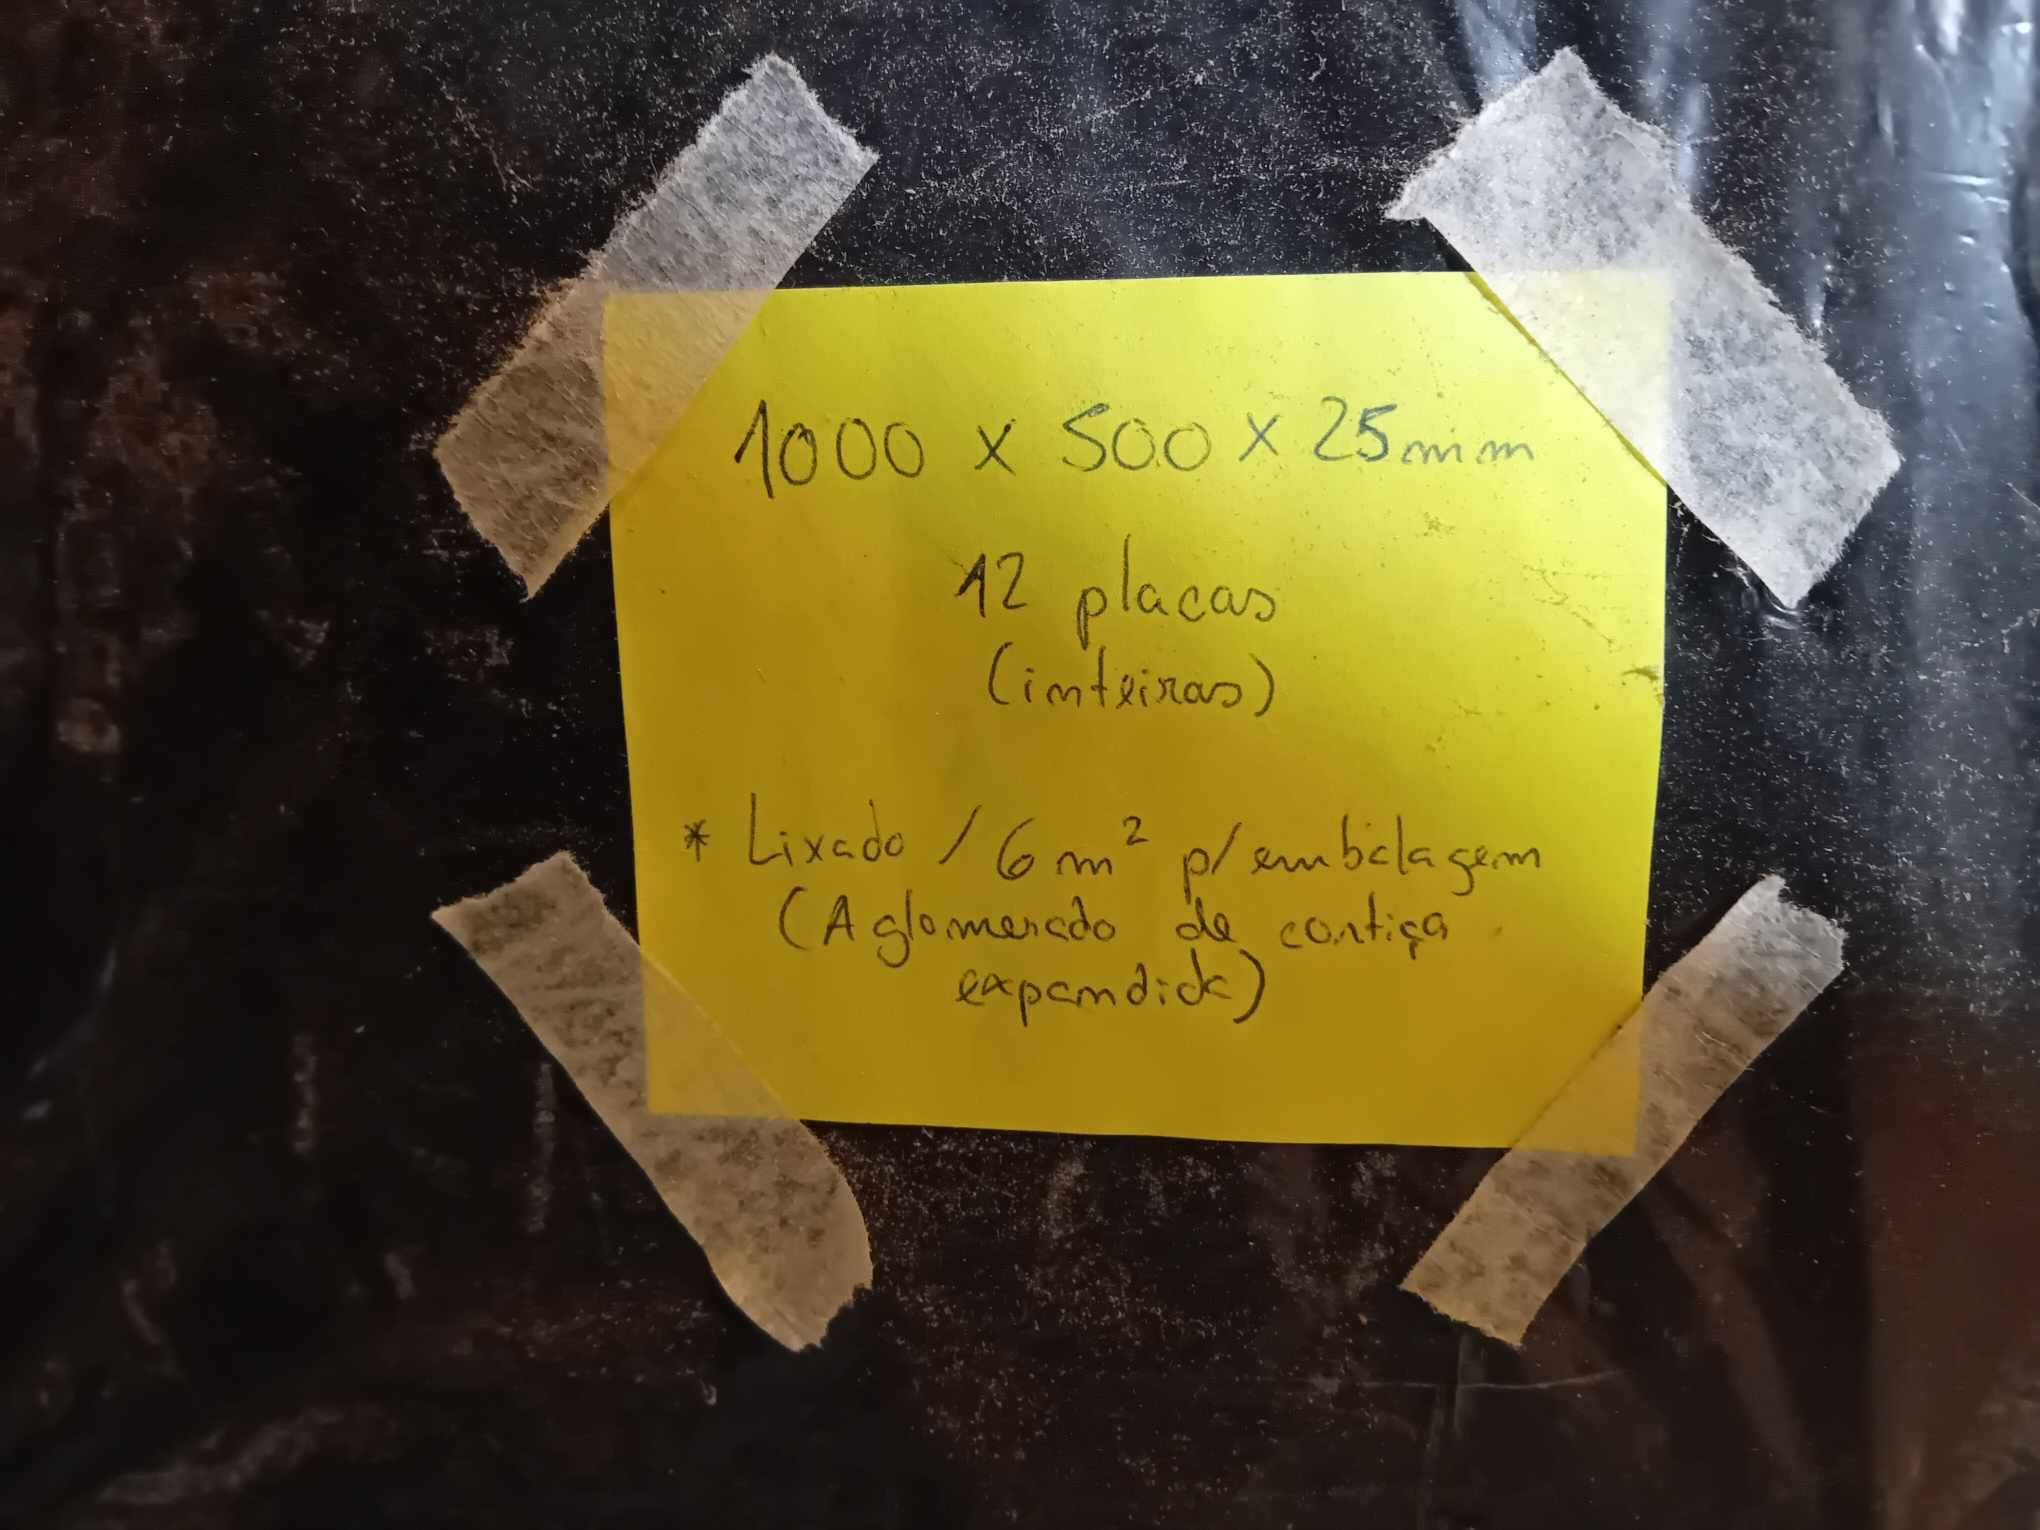 1000 x 500 x 25mm
12 placas
(inteiras)
* Lixado / 6 m² p/embalagem
(Aglomerado de cortiça
expandida)